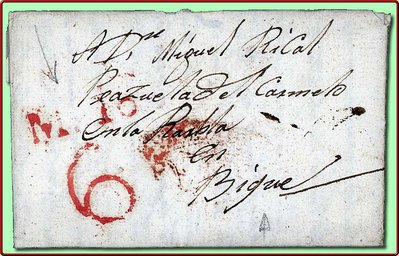 A Dn Miguel Rical
Plazuela del Carmelo
En la Rambla
en
Bique
6